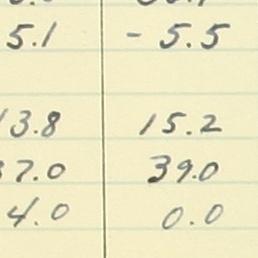 5.1 - 5.5
13.8 15.2
37.0 39.0
4.0 0.0